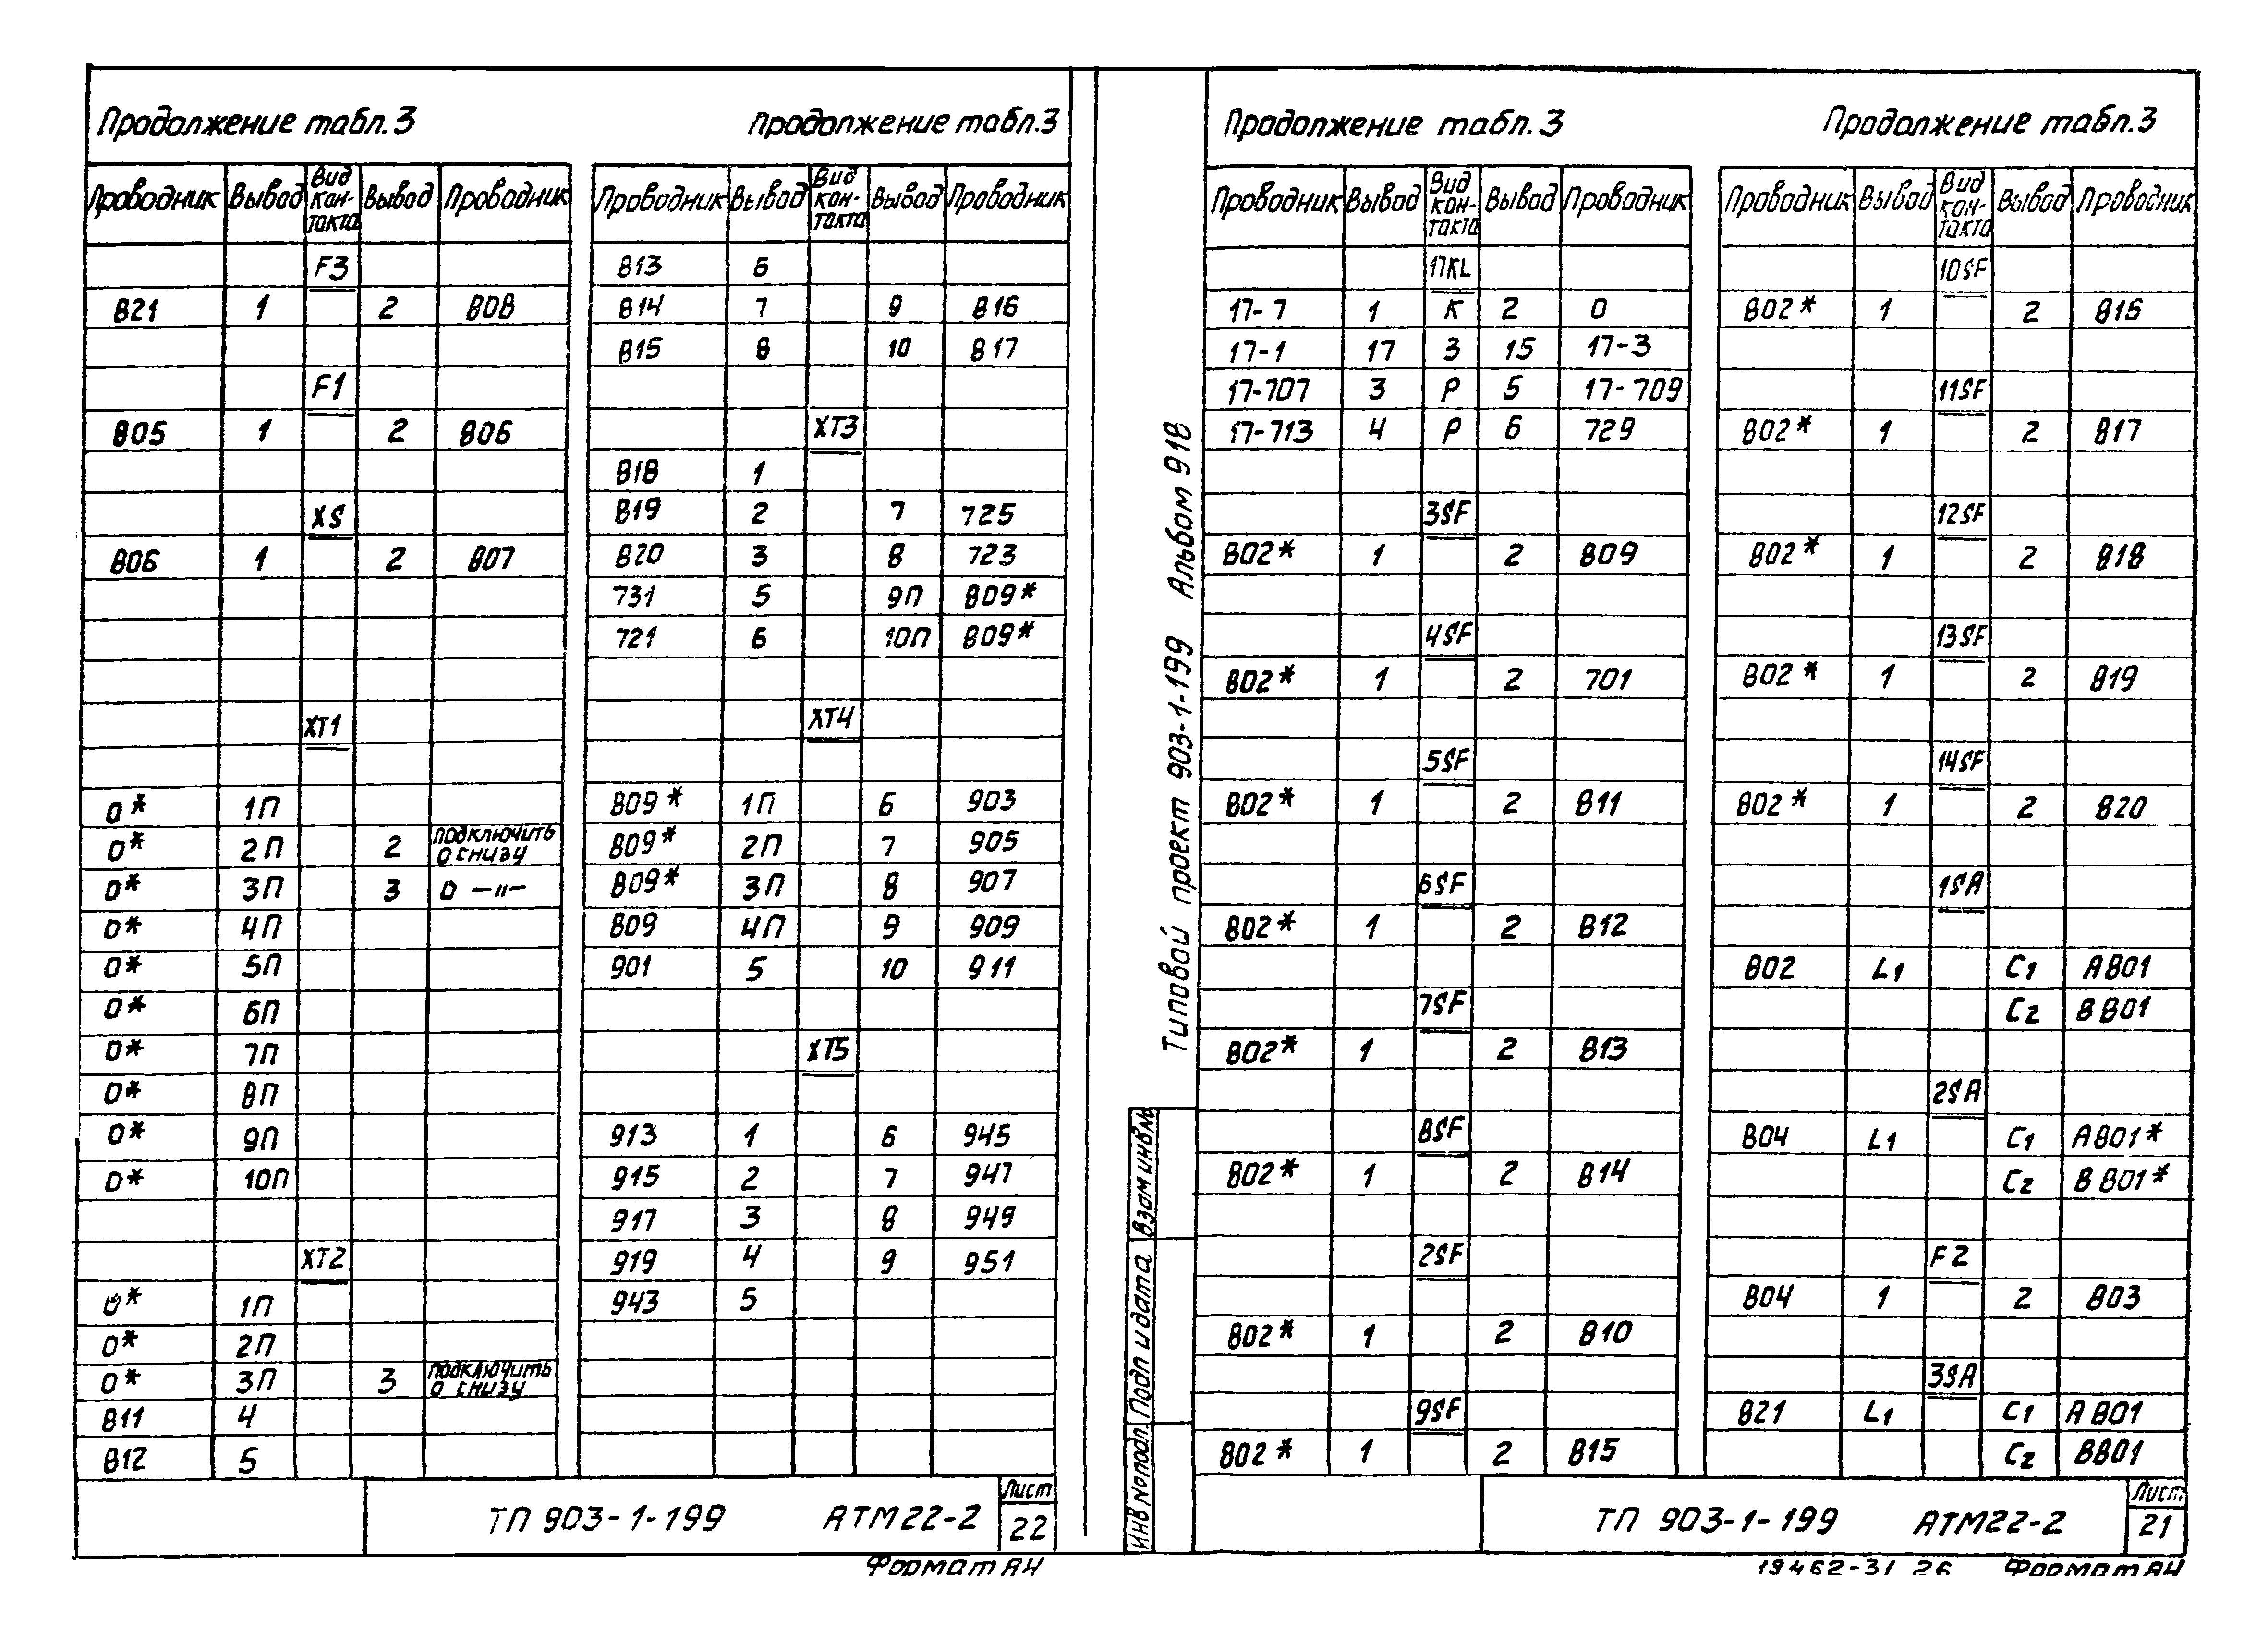 Продолжение табл.3 Продолжение табл.3
Проводник Вывод Вид кон-такта Вывод Проводник
F3
821 1 2 808
F1
805 1 2 806
XS
806 1 2 807
XT1
0* 1П
0* 2П 2 подключить 0 снизу
0* 3П 3 0 —"—
0* 4П
0* 5П
0* 6П
0* 7П
0* 8П
0* 9П
0* 10П
XT2
0* 1П
0* 2П
0* 3П 3 подключить 0 снизу
811 4
812 5
Проводник Вывод Вид кон-такта Вывод Проводник
813 6
814 7 9 816
815 8 10 817
XT3
818 1
819 2 7 725
820 3 8 723
731 5 9П 809*
721 6 10П 809*
XT4
809* 1П 6 903
809* 2П 7 905
809* 3П 8 907
809 4П 9 909
901 5 10 911
XT5
913 1 6 945
915 2 7 947
917 3 8 949
919 4 9 951
943 5
ТП 903-1-199 АТМ22-2
Лист
22
Формат А4
Типовой проект 903-1-199 Альбом 918
Взам инв№
Подп и дата
Инв№подл.
Продолжение табл.3 Продолжение табл.3
Проводник Вывод Вид кон-такта Вывод Проводник
17KL
17-7 1 К 2 0
17-1 17 З 15 17-3
17-707 3 Р 5 17-709
17-713 4 Р 6 729
3SF
802* 1 2 809
4SF
802* 1 2 701
5SF
802* 1 2 811
6SF
802* 1 2 812
7SF
802* 1 2 813
8SF
802* 1 2 814
2SF
802* 1 2 810
9SF
802* 1 2 815
Проводник Вывод Вид кон-такта Вывод Проводник
10SF
802* 1 2 816
11SF
802* 1 2 817
12SF
802* 1 2 818
13SF
802* 1 2 819
14SF
802* 1 2 820
1SA
802 L1 C1 A801
C2 B801
2SA
804 L1 C1 A801*
C2 B801*
F2
804 1 2 803
3SA
821 L1 C1 A801
C2 B801
ТП 903-1-199 АТМ22-2
Лист
21
19462-31 26 Формат А4